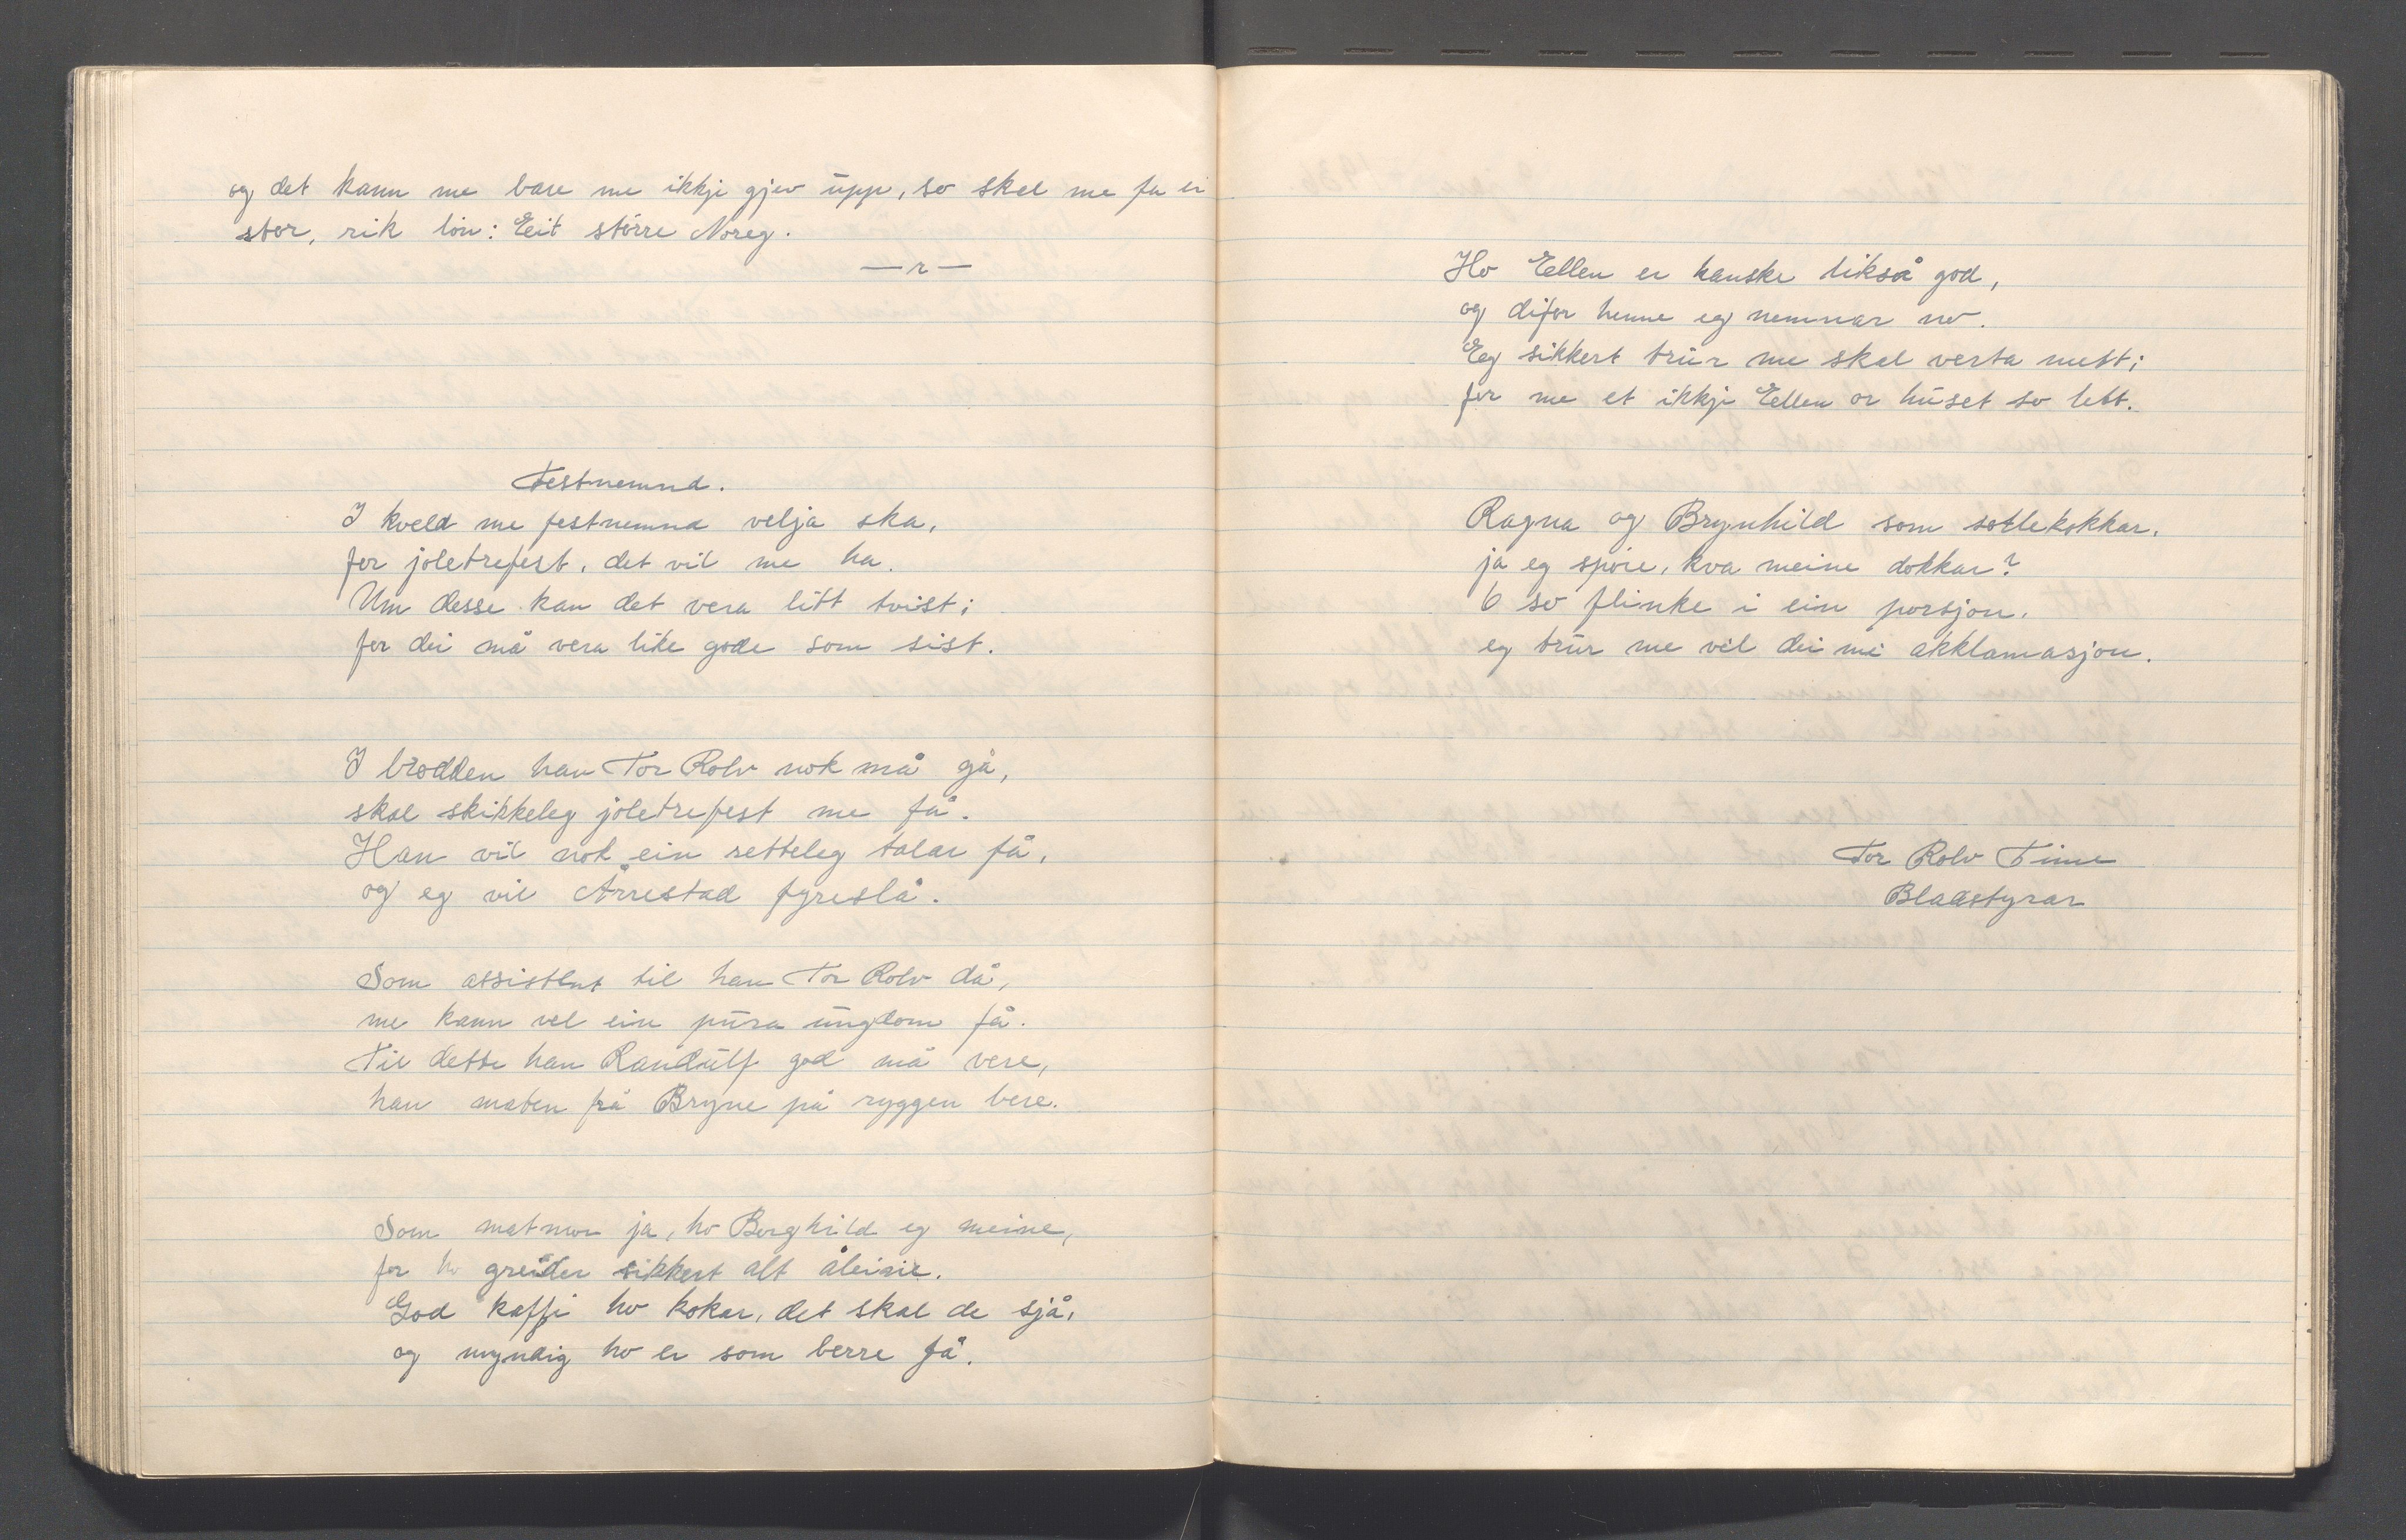 og det kann me bare me ikkji gjev upp, so skal me fa ei
stor, rik lön: Eit större Noreg.
— r —
Festnemnd.
I kveld me festnemnd velja ska,
for joletrefest, det vil me ha.
Um desse kan det vera litt tvist;
for dei må vera like gode som sist.
I brodden han Tor Rolv nok må gå,
skal skikkeleg joletrefest me få.
Han vil nok ein retteleg talar få,
og eg vil Årrestad fyreslå.
Som assistent til han Tor Rolv då,
me kann vel ein pura ungdom få.
Til dette han Randulf god må vere,
han maten frå Bryne på ryggen bere.
Som matmor ja, ho Borghild eg meine,
for ho greider sikkert alt åleine.
God kaffi ho kokar, det skal de sjå,
og myndig ho er som berre få.
Ho Ellen er kanske likså god,
og difor henne eg nemnar no.
Eg sikkert trur me skal verta mett;
for me et ikkji Ellen or huset so lett.
Ragna og Brynhild som sotlekokkar,
ja eg spöre, kva meine dokkar?
6 so flinke i ein porsjon,
eg trur me vel dei mi akklamasjon.
Tor Rolv Time
Bladstyrar